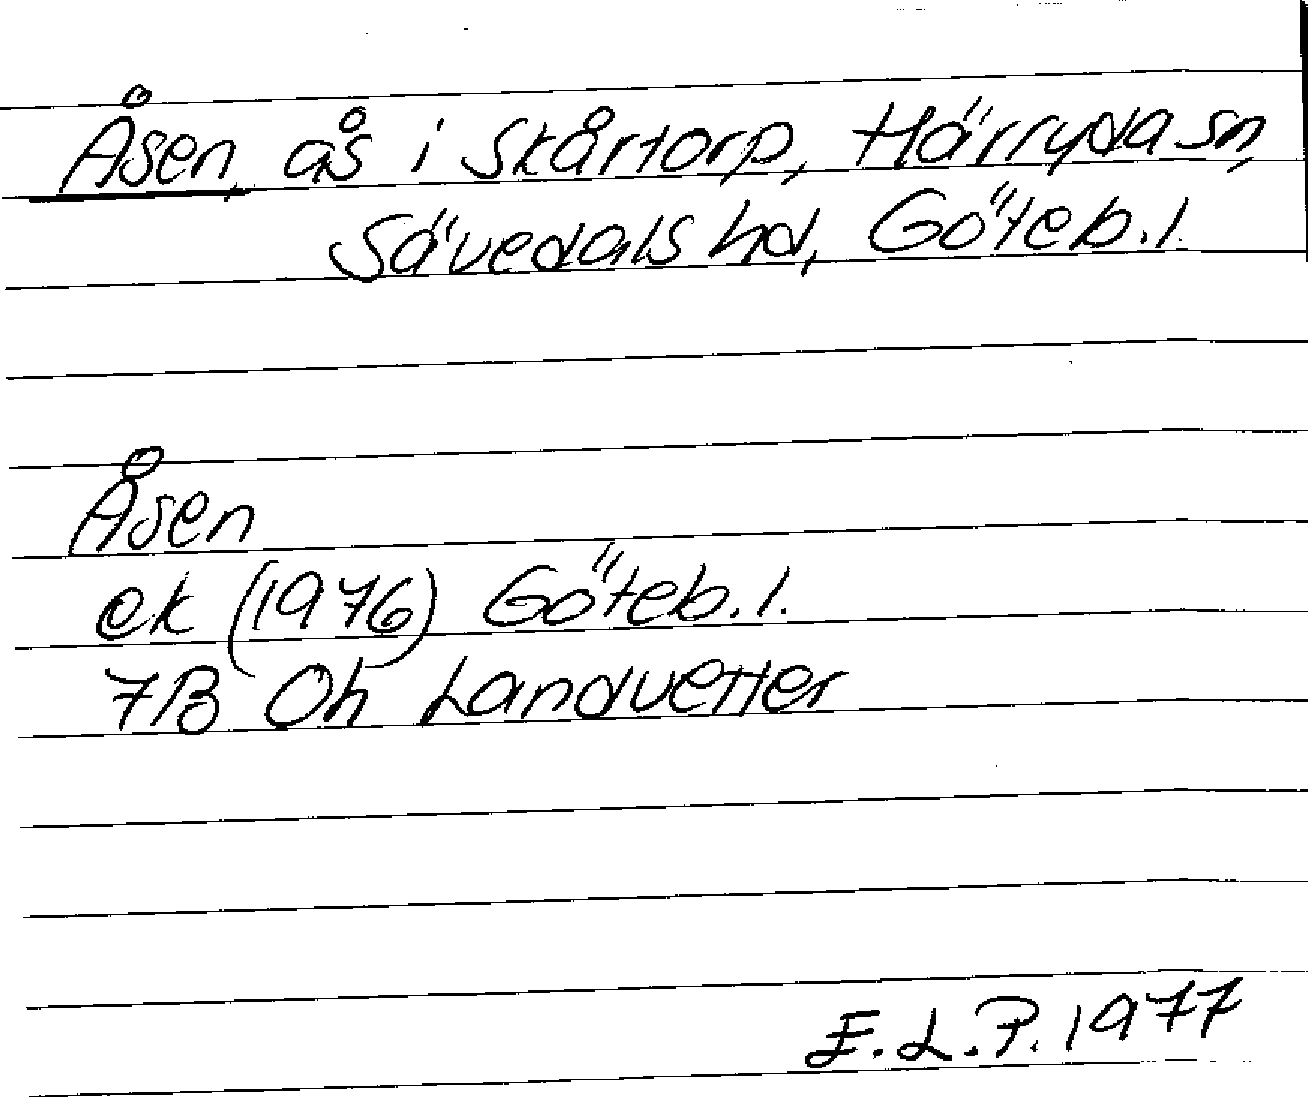 Åsen, ås i Skårtorp, Härryda sn,
Sävedals hd, Göteb. l.
Åsen
ek (1976) Göteb. l.
7B 0h Landvetter
E.L.P. 1977